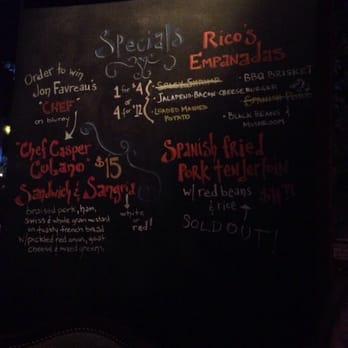 Specials
Order to win
Jon Favreau's
"CHEF"
on bluray
Chef Casper
Cubano $15
Sandwich & Sangria
white or red!
braised pork, ham,
swiss & whole grain mustard
on toasty french bread
w/ pickled red onion, goat
cheese & mixed greens
Rico's
Empanadas
1 for $4
or
4 for 12
Spicy Shrimp
Jalapeno-Bacon Cheeseburger
Loaded Mashed
Potato
BBQ Brisket
Spanish
Black Beans &
Mushroom
Spanish fried
Pork tenderloin
w/ red beans
& rice
SOLD OUT!